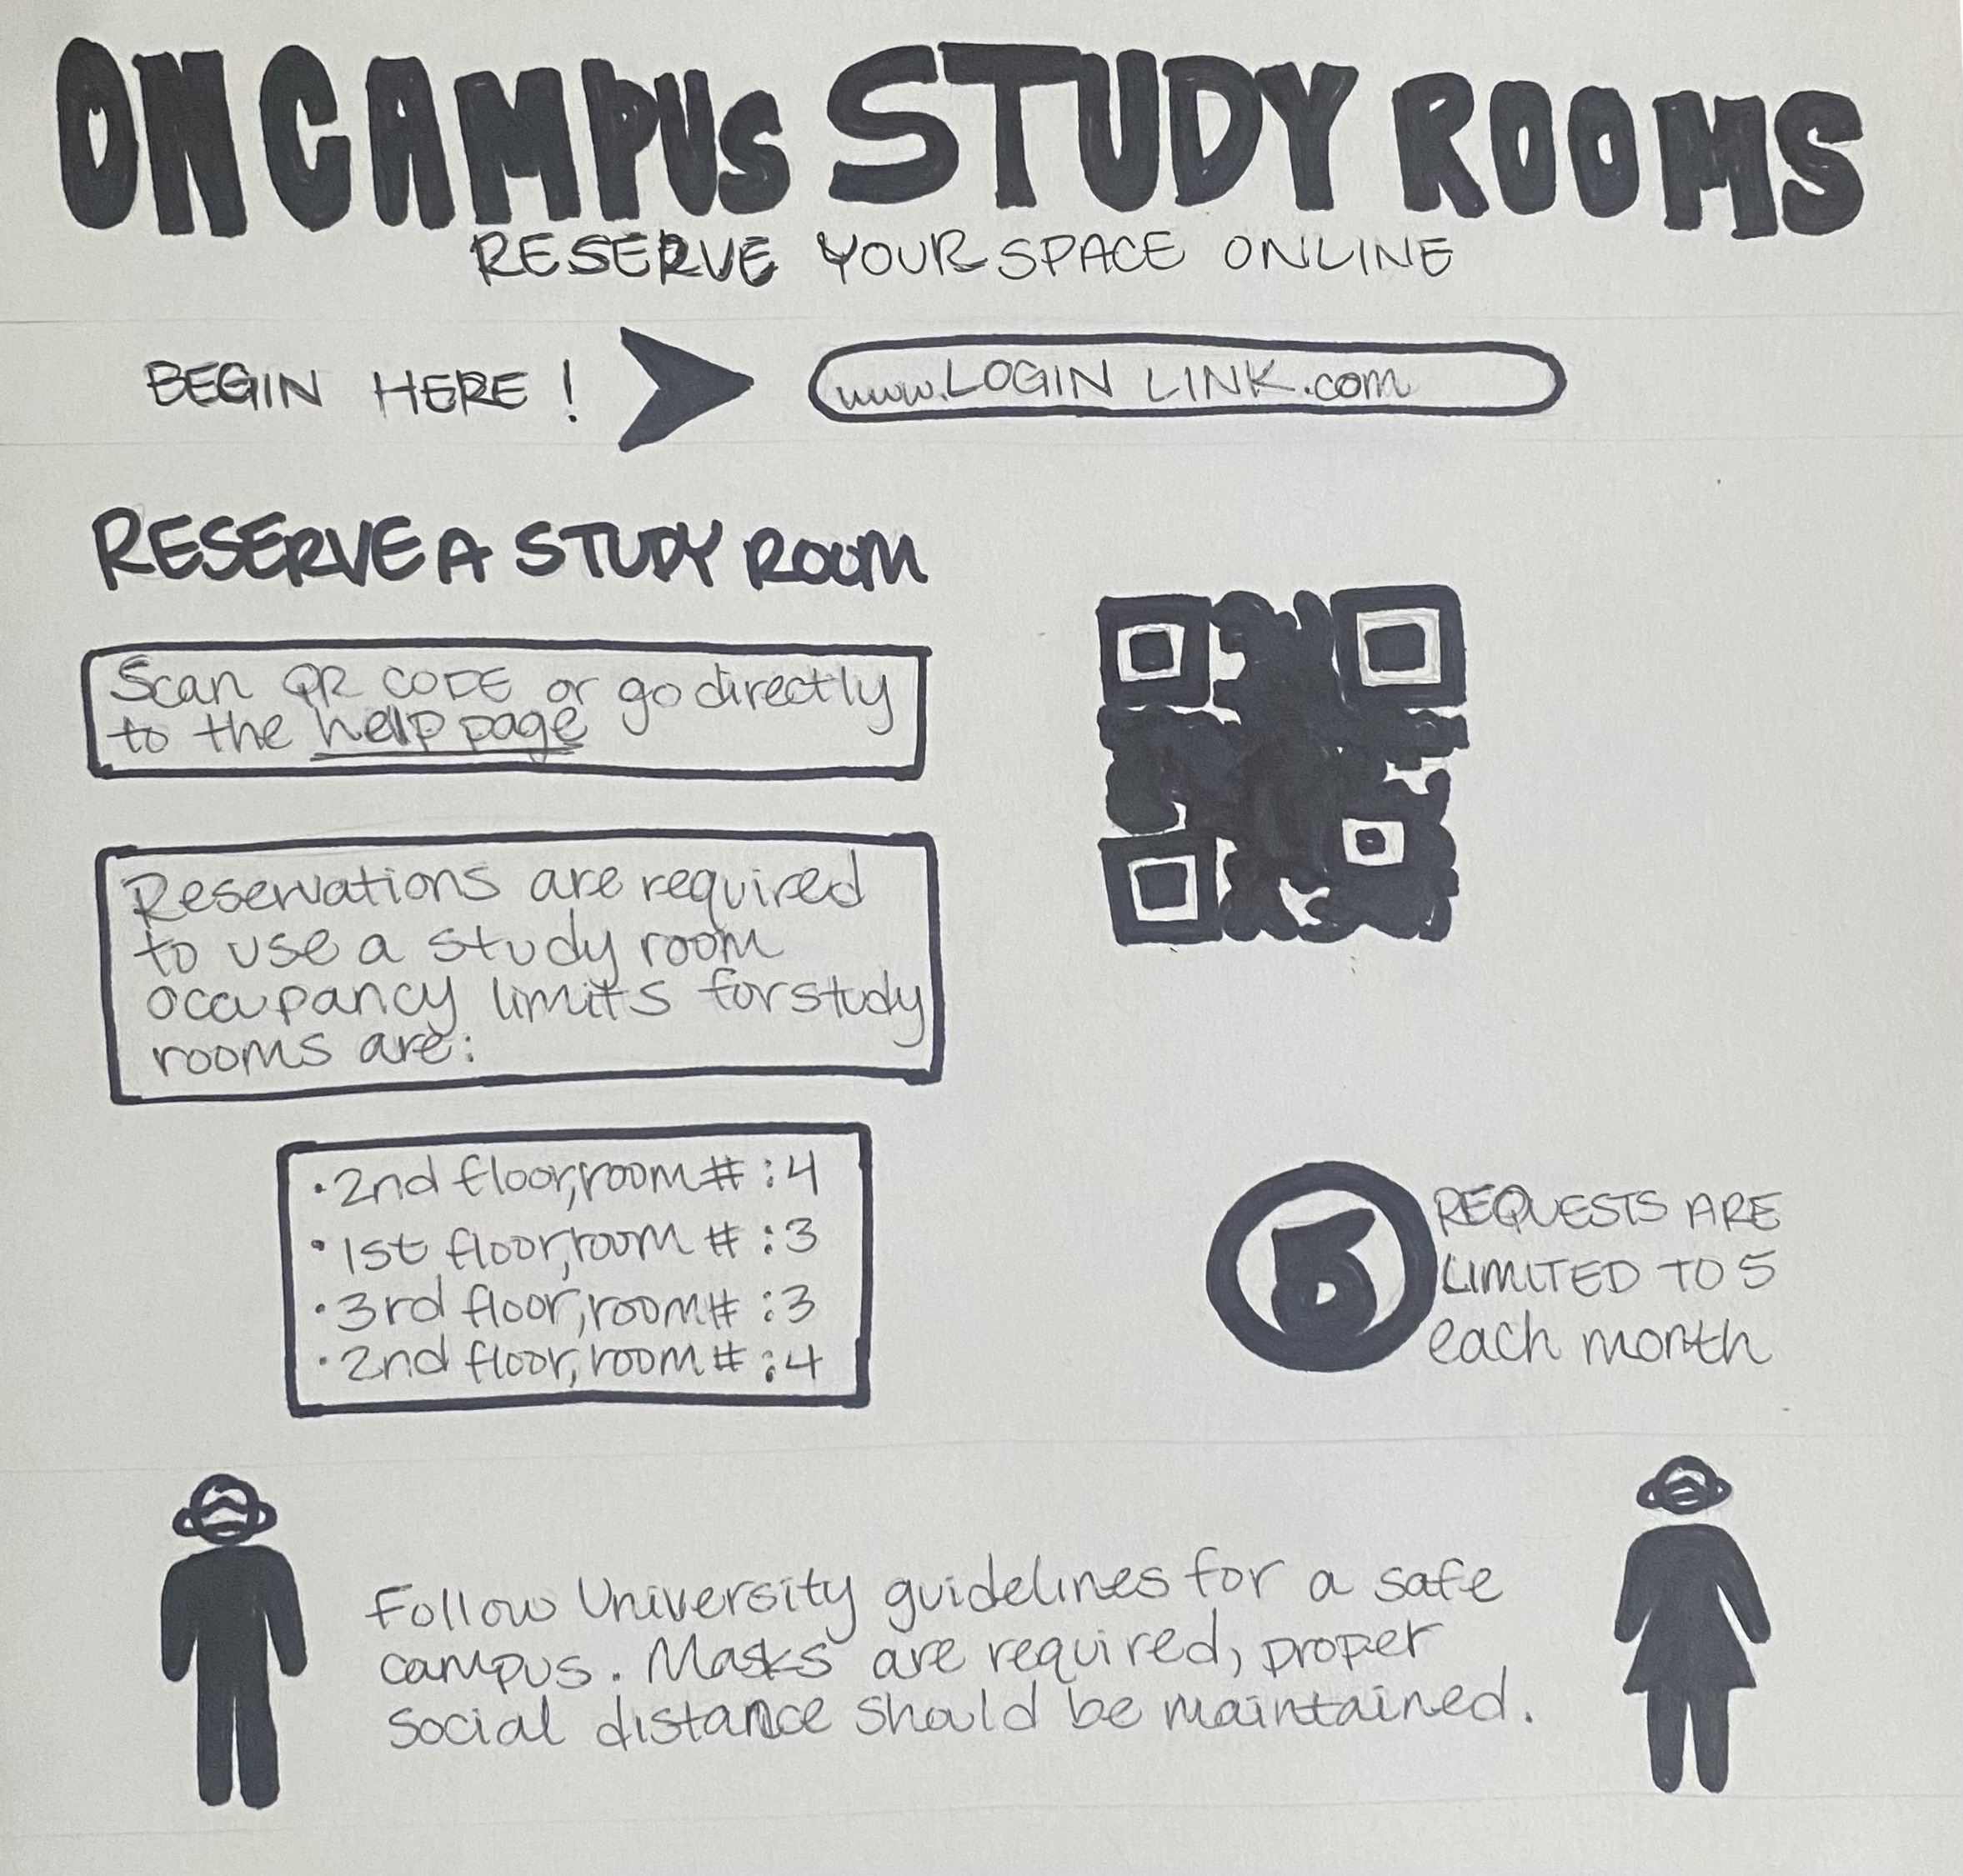 ON CAMPUS STUDY ROOMS
RESERVE YOUR SPACE ONLINE
BEGIN HERE !
www.LOGIN LINK.com
RESERVE A STUDY ROOM
Scan QR CODE or go directly
to the help page
Reservations are required
to use a study room
occupancy limits for study
rooms are:
• 2nd floor, room # : 4
• 1st floor, room # : 3
• 3rd floor, room # : 3
• 2nd floor, room # : 4
5
REQUESTS ARE
LIMITED TO 5
each month
Follow University guidelines for a safe
campus. Masks are required, proper
social distance should be maintained.